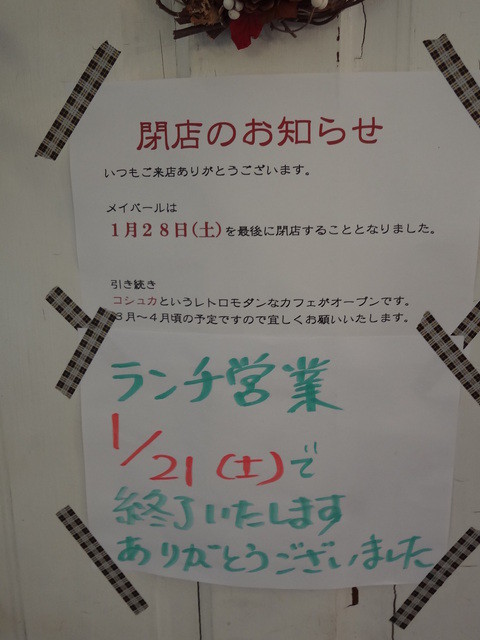 閉店のお知らせ
いつもご来店ありがとうございます。
メイベールは
1月28日(土)を最後に閉店することとなりました。
引き続き
コシュカというレトロモダンなカフェがオープンです。
3月～4月頃の予定ですので宜しくお願いいたします。
ランチ営業
1/21(土)で
終了いたします
ありがとうございました